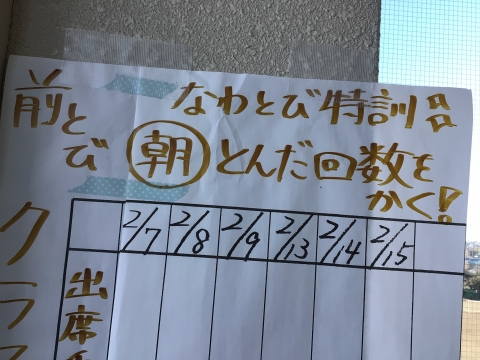 なわとび特訓
前とび 朝 とんだ回数を
かく!
2/7 2/8 2/9 2/13 2/14 2/15
クラス
出席